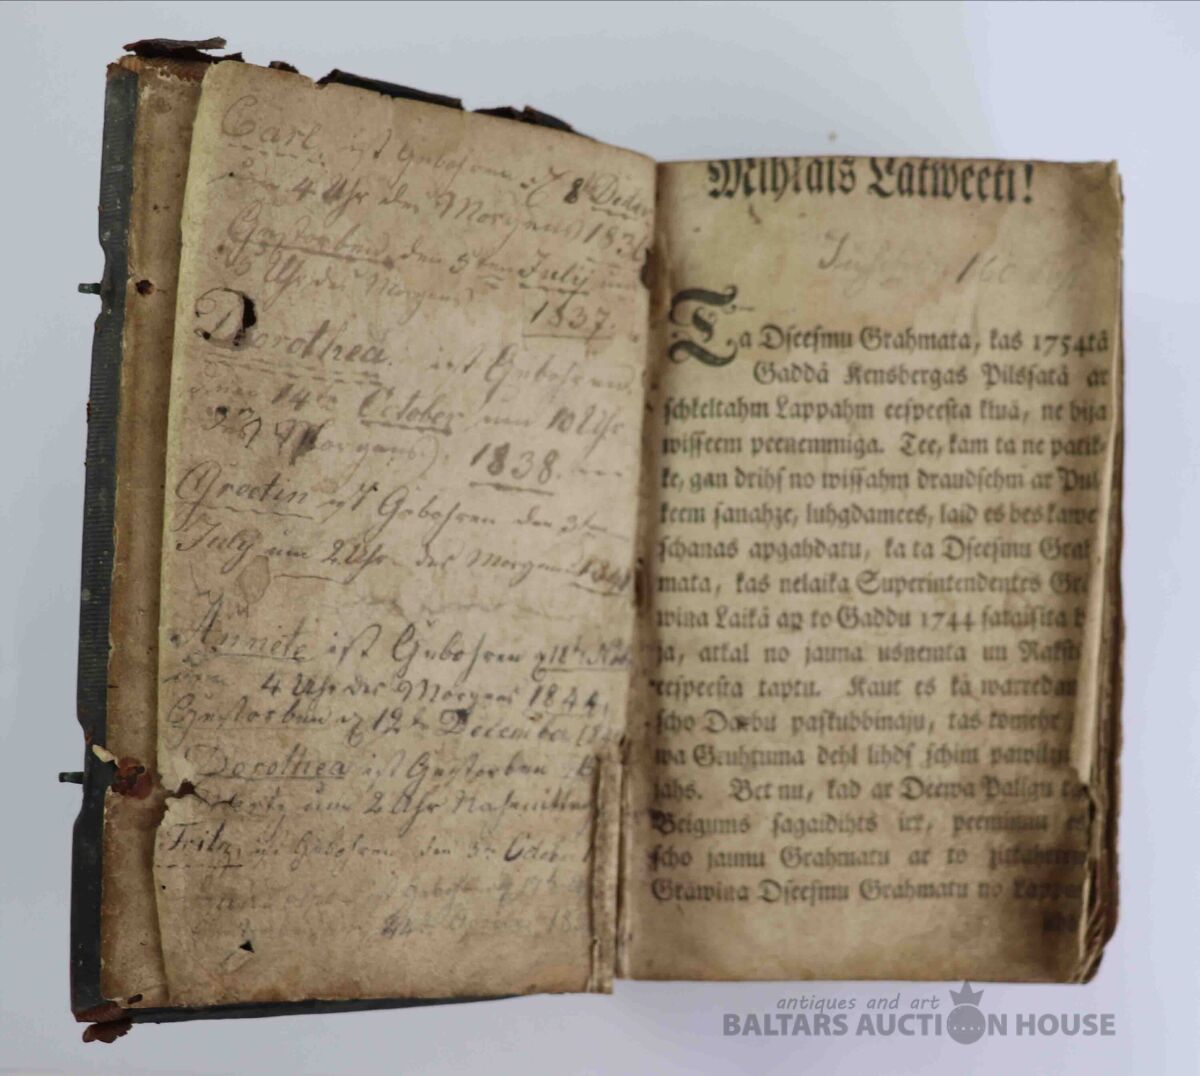 Carl ist Gebohren d 8 Decbr
um 4 Uhr des Morgens 1836
Gestorben den 5ten July um
3 Uhr des Morgens
1837.
Dorothea ist Gebohren
den 14ten October um 10 Uhr
Morgens 1838.
Greetin ist Gebohren den 3ten
July um 2 Uhr des Morgens
Annete ist Gebohren d 18ten
um 4 Uhr des Morgens 1844,
Gestorben d 12ten December
Dorothea ist Gestorben
Mertz um 2 Uhr Nahmittag
Fritz ist Gebohren den 3ten October
ist Gebohren
Mihłais Latweeti!
160
Ta Dſeeſmu Grahmata, kas 1754tâ
Gaddâ Kensbergas Pilsſatâ ar
ſchkeltahm Lappahm eeſpeeſta kluâ, ne bija
wiſſeem peenemmiga. Tee, kam ta ne patik-
ke, gan drihſ no wiſſahm draudſehm ar Pul-
keem ſanahze, luhgdamees, laid es bes kawe-
ſchanas apgahdatu, ka ta Dſeeſmu Grah-
mata, kas nelaika Superintendentes Gra-
wiņa Laikâ ap to Gaddu 1744 ſataiſita b
ja, atkal no jauna usņemta un Rakſtos
eeſpeeſta taptu. Kaut es kâ warredams
ſcho Darbu paſkubbinaju, tas tomehr
wa Gruhtuma dehł lihdſ ſchim pawilzi
jahs. Bet nu, kad ar Deewa Paligu ta
Beigums ſagaidihts irr, peeminnu es
ſcho jaunu Grahmatu ar to
Grawiņa Dſeeſmu Grahmatu no Lappas
antiques and art
BALTARS AUCTION HOUSE